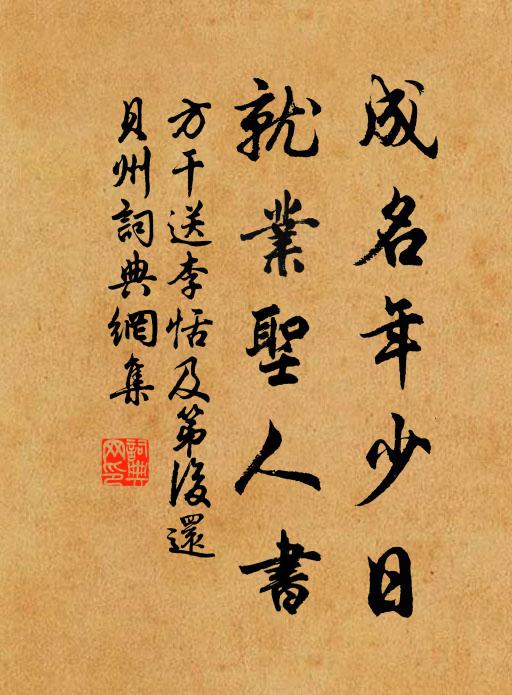 成名年少日
就業聖人書
方干送李恬及第後還
貝州詞典網集
詞典
网印